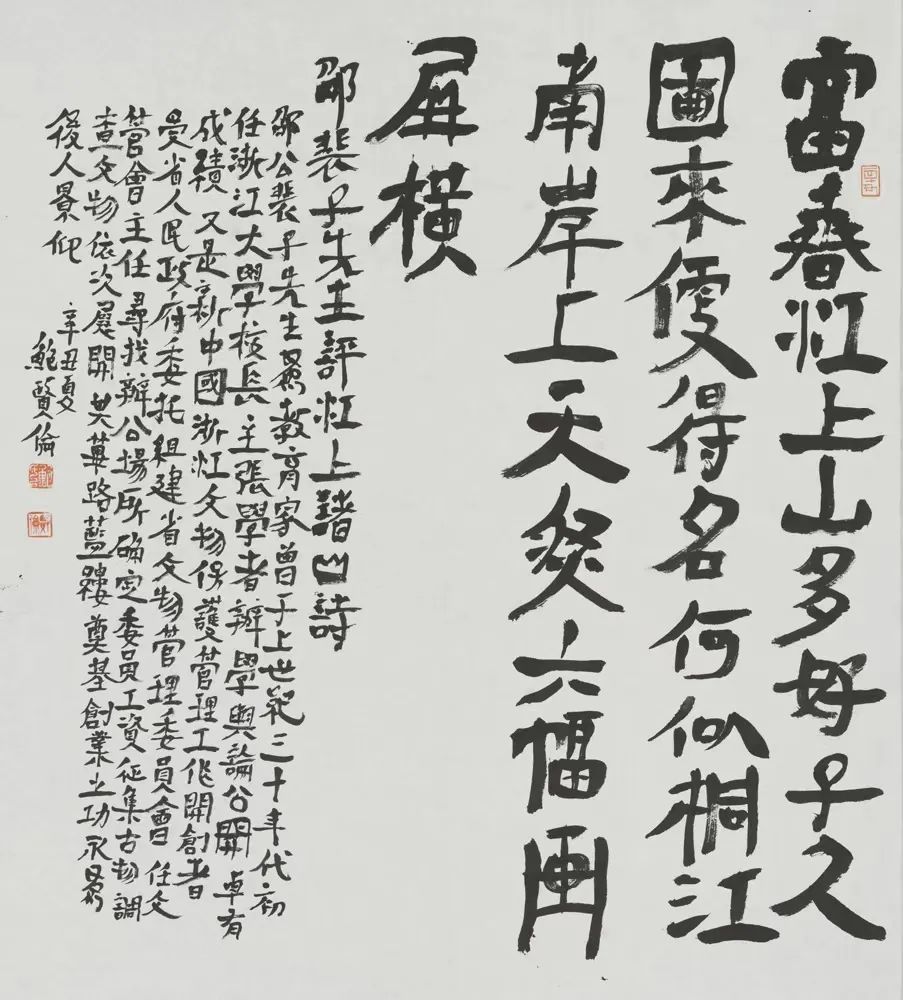 富春江上山多母子久
圖來便得名何似桐江
南岸上天然六幅画
屏橫
邵裴子先生評江上諸山詩
邵公裴子先生爲教育家曾于上世紀三十年代初
任浙江大學校長主張學者辦學輿論公開卓有
成績又是新中國浙江文物保護管理工作開創者
受省人民政府委托組建省文物管理委員會任文
管會主任尋找辦公場所确定委員工資征集古物調
查文物依次展開其篳路藍縷奠基創業之功永爲
後人景仰
辛丑夏
鮑賢倫